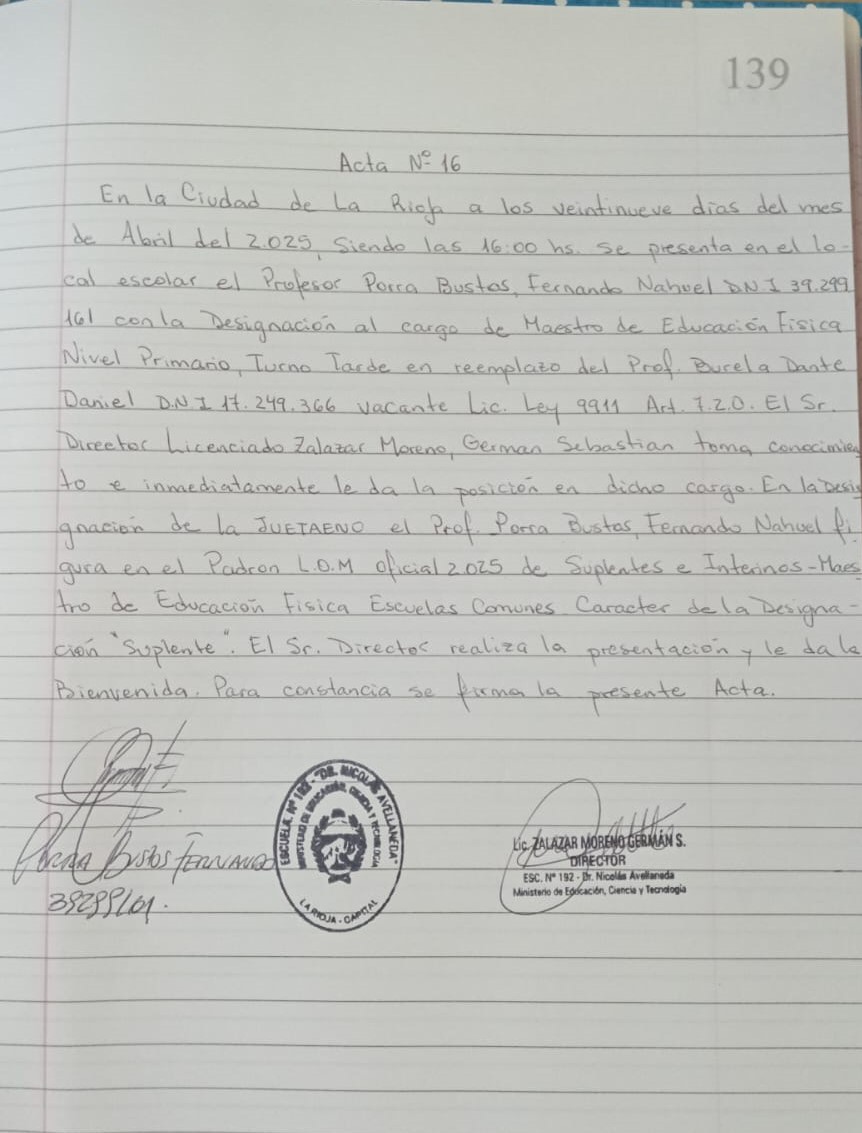 139
Acta Nº 16
En la Ciudad de La Rioja a los veintinueve dias del mes
de Abril del 2.025, Siendo las 16:00 hs. se presenta en el lo-
cal escolar el Profesor Porra Bustos, Fernando Nahuel DN.I 39.299
161 con la Designación al cargo de Maestro de Educación Fisica
Nivel Primario, Turno Tarde en reemplazo del Prof. Burela Dante
Daniel D.N.I 17.249.366 vacante Lic. Ley 9911 Art. 7.2.0. El Sr.
Director Licenciado Zalazar Moreno, German Sebastian toma conocimien
to e inmediatamente le da la posición en dicho cargo. En la Desig
gnación de la JUETAENO el Prof. Porra Bustos, Fernando Nahuel fi-
gura en el Padron L.O.M oficial 2025 de Suplentes e Interinos-Maes
tro de Educación Fisica Escuelas Comunes Caracter de la Designa-
ción "Suplente". El Sr. Director realiza la presentación y le da la
Bienvenida. Para constancia se firma la presente Acta.
Porra Bustos FERNANDO
39299161.
ESCUELA Nº 192 - "DR. NICOLÁS AVELLANEDA"
MINISTERIO DE EDUCACIÓN, CIENCIA Y TECNOLOGIA
LA RIOJA - CAPITAL
Lic. ZALAZAR MORENO GERMÁN S.
DIRECTOR
ESC. Nº 192 - Dr. Nicolás Avellaneda
Ministerio de Educación, Ciencia y Tecnología